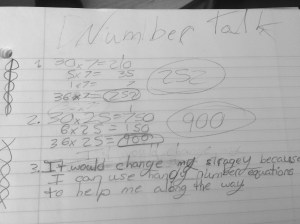 Number talk
1. 30x7=210
5x7= 35
1x7= 7
36x7=252
252
2. 30x25=750
6x25=150
36x25=900
900
3. It would change my stragey because
I can use handy numbers equations
to help me along the way